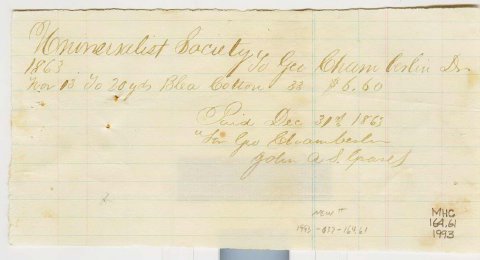 Universalist Society To Geo Chamberlin Dr
1863
Nov 13 To 20 yds Blea Cotton 33 $6.60
Paid Dec 31st 1863
"for Geo Chamberlin
John A. S.
NEW #
1993-037-164.61
MHC
164.61
1993